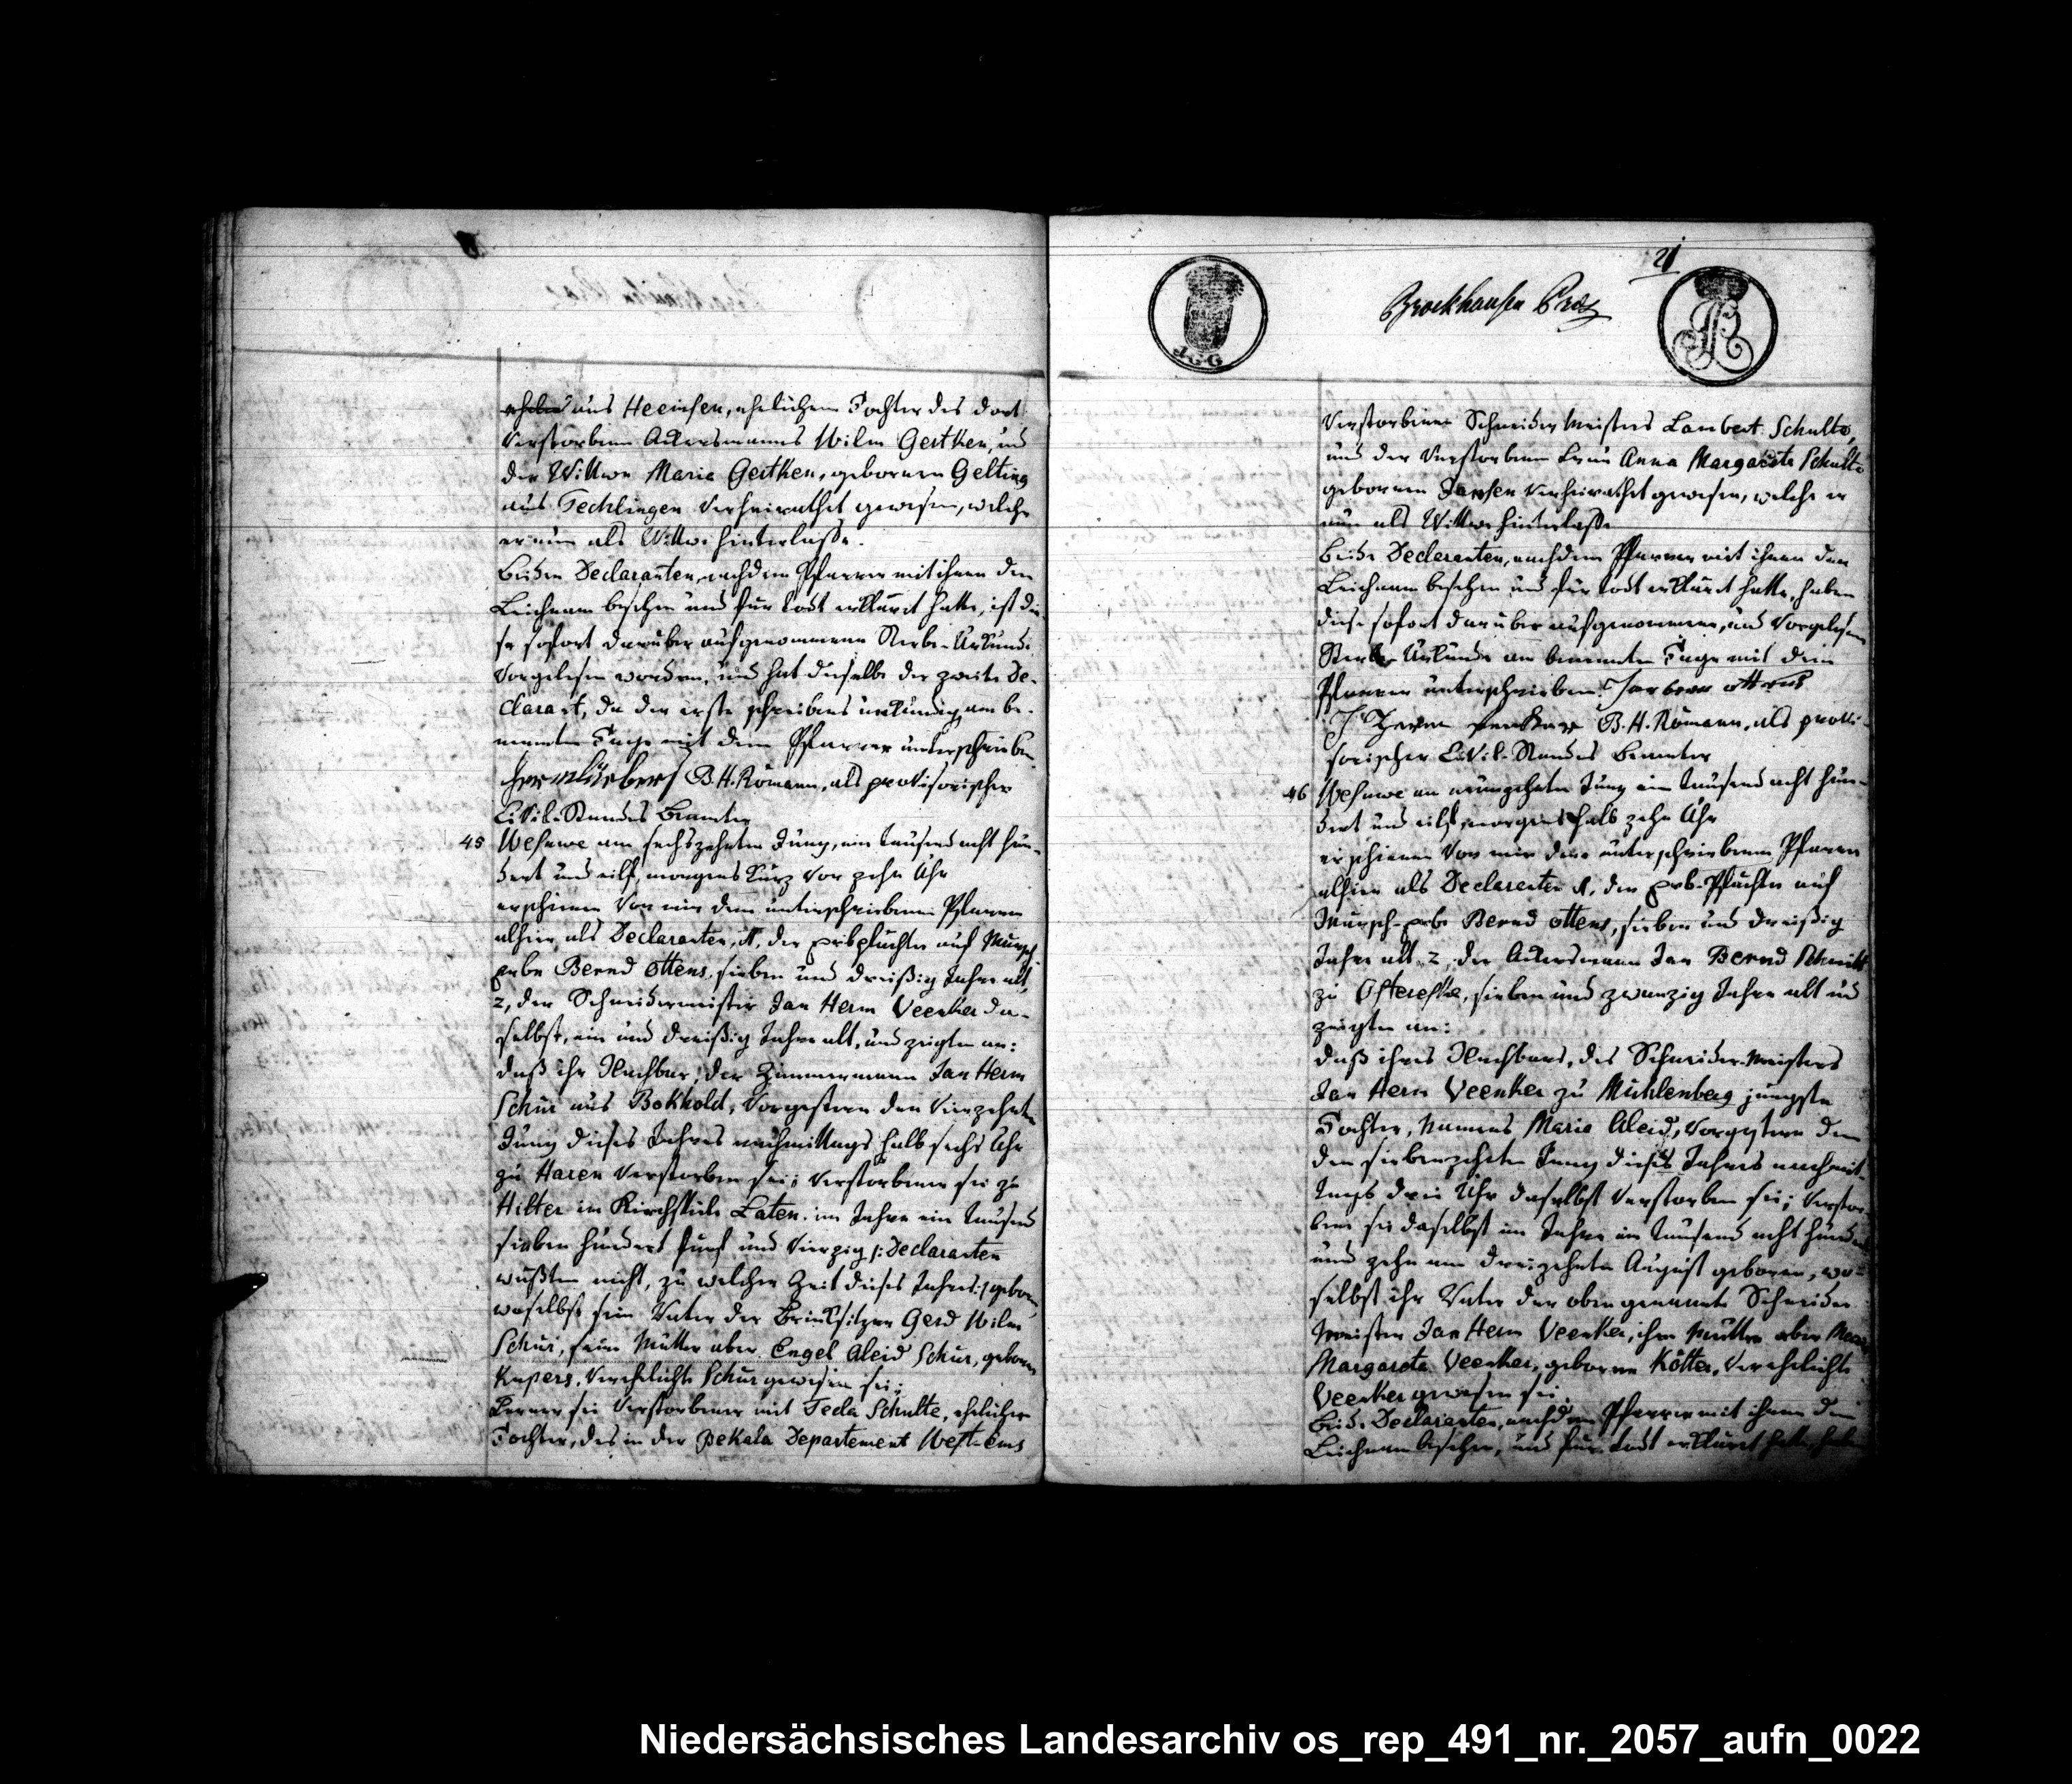 aus Heeinsen, ehelichen Tochter des dort
verstorbenen Ackersmanns Wilm Gertken, und
der Wittwe Maria Gertken, gebornen Gelting
aus Techlingen verheirathet gewesen, welche
er nun als Wittwe hinterlasse.
Beiden Declaranten, nachdem Pfarrer mit ihnen den
Leichnam besehen und für todt erklärt hatte, ist die-
se sofort darüber aufgenommene Sterbe-Urkunde
vorgelesen worden, und hat dieselbe der zweite De-
clarant, da der erste schreibens unkundig, am be-
nannten Tage mit dem Pfarrer unterschrieben
B. H. Römann, als provisorischer
Civil-Standes Beamter
45 Wesuwe am sechszehnten Juny, ein tausend acht hun-
dert und eilf, morgens kurz vor zehn Uhr
erschienen vor mir dem unterschriebenen Pfarrer
alhier, als Declaranten, 1, der erbpfächter auf Mursch
erbe Bernd Ottens, sieben und dreißig Jahre alt,
2, der Schneidermeister Jan Herm Veenker da-
selbst, ein und dreißig Jahre alt, und zeigten an:
daß ihr Nachbar, der Zimmermann Jan Herm
Schur aus Bokhold, vorgestern den vierzehnten
Juny dieses Jahres nachmittags halb sechs Uhr
zu Haren verstorben sei; verstorbener sei zu
Hilter im Kirchspiele Laten, im Jahre ein tausend
sieben hundert fünf und vierzig /: Declaranten
wußten nicht, zu welcher Zeit dieses Jahres :/ geboren,
woselbst sein Vater der Brinksitzer Gerd Wilm
Schur, seine Mutter aber Engel Aleid Schur, geborne
Kupers, verehelichte Schur gewesen sei;
Ferner sei verstorbener mit Tecla Schulte, ehelicher
Tochter, des in der Pekala Departement West-Ems
21
Brockhausen
verstorbenen Schneider Meisters Lambert Schulte,
und der verstorbenen Frau Anna Margareta Schulte
gebornen Jansen verheirathet gewesen, welche er
nun als Wittwe hinterlasse
Beide Declaranten, nachdem Pfarrer mit ihnen den
Leichnam besehen und für todt erklärt hatte, haben
diese sofort darüber aufgenommene, und vorgelesene
Sterbe-Urkunde am benannten Tage mit dem
Pfarrer unterschrieben.
B. H. Römann, als provi-
sorischer Civil-Standes Beamter
46 Wesuwe am neunzehnten Juny ein tausend acht hun-
dert und eilf, morgens halb zehn Uhr
erschienen vor mir dem unterschriebenen Pfarrer
alhier als Declaranten 1, der erb-Pfächter auf
Mursch-erbe Bernd Ottens, sieben und dreißig
Jahre alt 2, der Ackersmann Jan Bernd Schmitt
zu, sieben und zwanzig Jahre alt und
zeigten an:
daß ihres Nachbars, des Schneider-Meisters
Jan Herm Veenker zu Muhlenberg jüngste
Tochter, Namens Maria Aleid, vorgestern den
den siebenzehnten Juny dieses Jahres nachmit-
tags drei Uhr daselbst verstorben sei; verstor-
bene sei daselbst im Jahre ein tausend acht hundert
und zehn am dreizehnten August geboren, wo-
selbst ihr Vater der oben genannte Schneider
Meister Jan Herm Veenker, ihre Mutter aber
Margareta Veenker, geborne Kötter, verehelichte
Veenker gewesen sei.
Beide Declaranten, nachdem Pfarrer mit ihnen den
Leichnam besehen, und für todt erklärt hatte, haben
Niedersächsisches Landesarchiv os_rep_491_nr._2057_aufn_0022